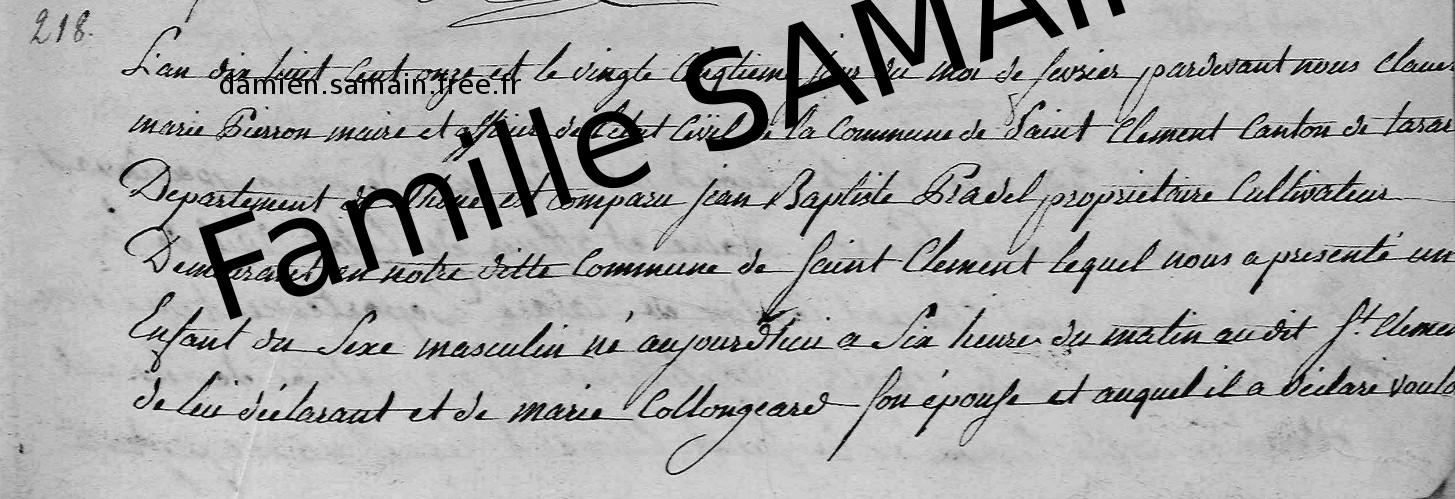 218.
L'an dix huit cent onze et le vingte cinqtieme jour du moi de fevrier pardevant nous Claude
marie Pierron maire et officier de l'etat Civil de la Commune de Saint Clement Canton de tarar
Departement du Rhone est comparu jean Baptiste Pradel proprietaire Cultivateur
Demeurant en notre ditte Commune de saint Clement lequel nous a presenté un
Enfant du Sexe masculin né aujourd'hui a Six heure du matin au dit St Clement
de lui déclarant et de marie Collongeard son épouse et auquel il a déclaré voulo
damien.samain.free.fr
Famille SAMAIN